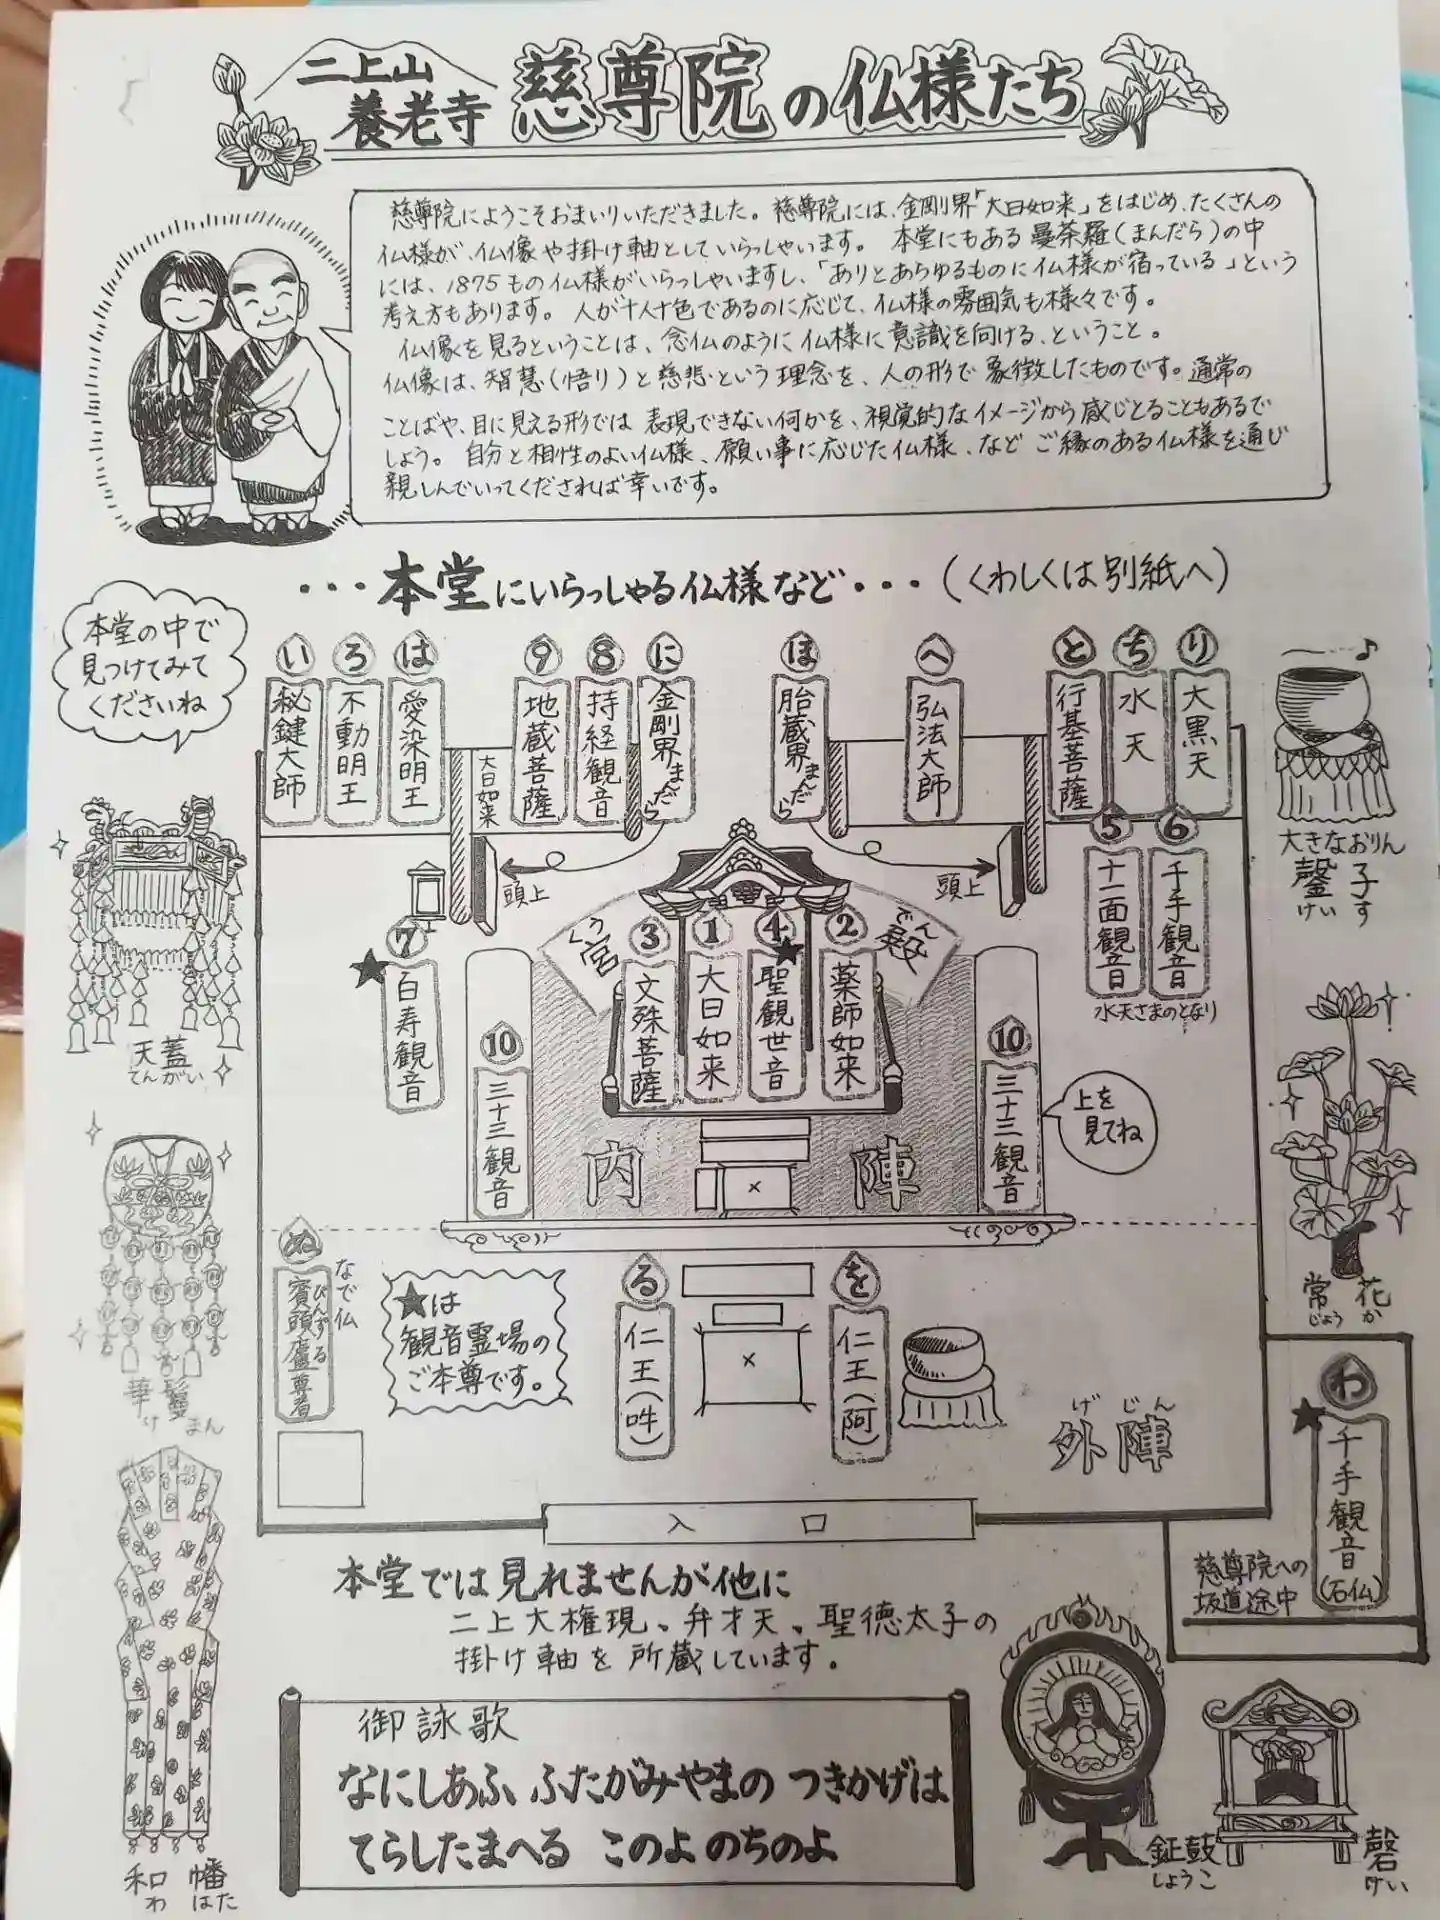 二上山
養老寺 慈尊院の仏様たち
慈尊院にようこそおまいりいただきました。慈尊院には、金剛界「大日如来」をはじめ、たくさんの
仏様が、仏像や掛け軸としていらっしゃいます。 本堂にもある曼荼羅(まんだら)の中
には、1875もの仏様がいらっしゃいますし、「ありとあらゆるものに仏様が宿っている」という
考え方もあります。 人が十人十色であるのに応じて、仏様の雰囲気も様々です。
仏像を見るということは、念仏のように仏様に意識を向ける、ということ。
仏像は、智慧(悟り)と慈悲という理念を、人の形で象徴したものです。通常の
ことばや、目に見える形では表現できない何かを、視覚的なイメージから感じとることもあるで
しょう。 自分と相性のよい仏様、願い事に応じた仏様、などご縁のある仏様を通じ
親しんでいってくだされば幸いです。
・・・本堂にいらっしゃる仏様など・・・(くわしくは別紙へ)
本堂の中で
見つけてみて
くださいね
い 秘鍵大師
ろ 不動明王
は 愛染明王
大日如来
9 地蔵菩薩
8 持経観音
に 金剛界まんだら
ほ 胎蔵界まんだら
へ 弘法大師
と 行基菩薩
ち 水天
り 大黒天
頭上
頭上
5 十一面観音
6 千手観音
水天さまのとなり
大きなおりん
磬子
けいす
★7 白寿観音
宮 くう
殿 でん
3 文殊菩薩
1 大日如来
4★ 聖観世音
2 薬師如来
10 三十三観音
10 三十三観音
上を
見てね
内陣
天蓋
てんがい
華鬘
けまん
常花
じょうか
ぬ 賓頭盧尊者
びんずる
なで仏
★は
観音霊場の
ご本尊です。
る 仁王(吽)
を 仁王(阿)
げじん
外陣
わ
★千手観音(石仏)
慈尊院への
坂道途中
入口
本堂では見れませんが他に
二上大権現、弁才天、聖徳太子の
掛け軸を所蔵しています。
御詠歌
なにしあふ ふたがみやまの つきかげは
てらしたまへる このよ のちのよ
和幡
わはた
鉦鼓
しょうこ
磬
けい